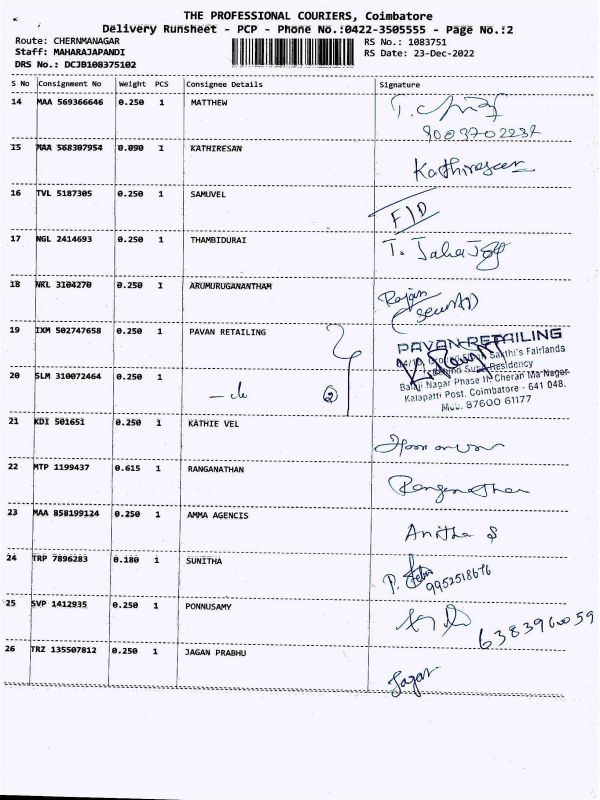 THE PROFESSIONAL COURIERS, Coimbatore
Delivery Runsheet - PCP - Phone No.:0422-3505555 - Page No.:2
Route: CHERNMANAGAR RS No.: 1083751
Staff: MAHARAJAPANDI RS Date: 23-Dec-2022
DRS No.: DCJB108375102
S No Consignment No Weight PCS Consignee Details Signature
14 MAA 569366646 0.250 1 MATTHEW
15 MAA 568307954 0.090 1 KATHIRESAN Kathiresan
16 TVL 5187305 0.250 1 SAMUVEL F/D
17 NGL 2414693 0.250 1 THAMBIDURAI
18 NKL 3104270 0.250 1 ARUMURUGANANTHAM Rajan
19 IXM 502747658 0.250 1 PAVAN RETAILING PAVAN RETAILING
Sakthi's Fairlands
Residency
20 SLM 310072464 0.250 1 - do 2 Balaji Nagar Phase II Cheran Ma Nagar
Kalapatti Post, Coimbatore - 641 048.
Mob: 87600 61177
21 KDI 501651 0.250 1 KATHIE VEL
22 MTP 1199437 0.615 1 RANGANATHAN Ranganathan
23 MAA 858199124 0.250 1 AMMA AGENCIS Anitha S
24 TRP 7896283 0.180 1 SUNITHA 9952518676
25 SVP 1412935 0.250 1 PONNUSAMY 6383960059
26 TRZ 135507812 0.250 1 JAGAN PRABHU Jagan